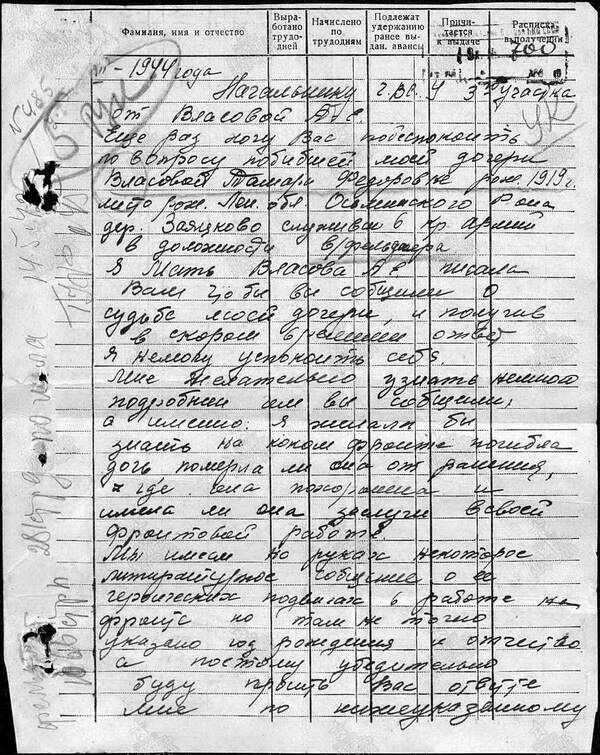 Фамилия, имя и отчество
Выра-
ботано
трудо-
дней
Начислено
по
трудодням
Подлежат
удержанию
ранее вы-
дан. авансы
Причи-
тается
к выдаче
Расписка
в получении
1944 года
Начальнику Г.В.С. У 3го участка
от Власовой А. Е.
Еще раз хочу Вас побеспокоить
по вопросу погибшей моей дочери
Власовой Тамары Федоровне рожд. 1919 г.
место рож. Лен. обл. Осьминского Рона
дер. Заяцково служивши в кр. армии
в должности в/фельдшера
Я Мать Власова А Е писала
Вам чтобы вы сообщили о
судьбе моей дочери, и получив
в скором времени ответ
Я немогу успокоить себя.
Мне желательно узнать немного
подробнеи чем вы сообщили,
а именно: я желала бы
знать на каком фронте погибла
дочь померла ли она от ранения,
где она похоронена и
имела ли она заслуги в своей
фронтовой работе
Мы имеем на руках некоторое
литературное сообщение о ее
героических подвигах в работе на
фронте но там не точно
указано год рождения и отчество
а поэтому убедительно
буду просить Вас ответте
мне по нижеуказанному